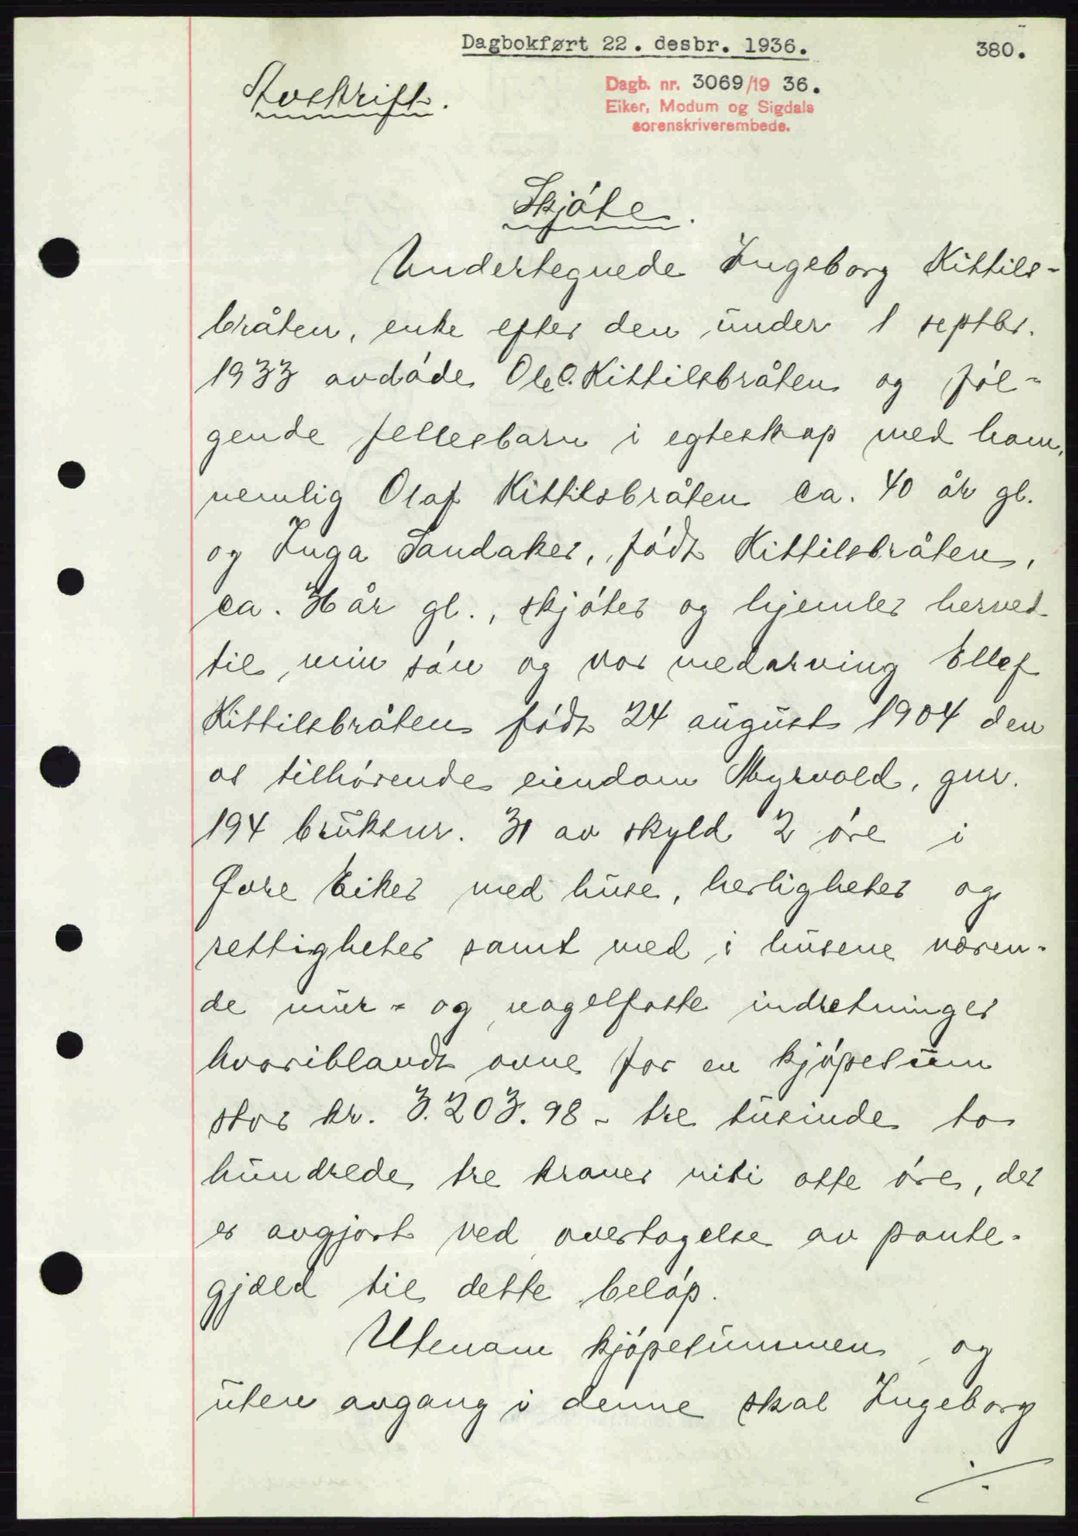 Dagbokført 22. desbr. 1936.
380.
Avskrift.
Dagb. nr. 3069/19 36.
Eiker, Modum og Sigdals
sorenskriverembede.
Skjøte.
Undertegnede Ingeborg Kittils-
bråten, enke efter den under 1 septbr.
1933 avdøde Ole O. Kittilsbråten og føl-
gende fellesbarn i egteskap med ham,
nemlig Olaf Kittilsbråten ca. 40 år gl.
og Inga Sandaker, født Kittilsbråten,
ca. 36 år gl., skjøter og hjemler herved
til min søn og vor medarving Ellef
Kittilsbråten født 24 august 1904 den
os tilhørende eiendom Myrvold, gnr.
194 bruksnr. 31 av skyld 2 øre i
Øvre Eiker med huse, herligheter og
rettigheter samt med i husene væren-
de mur- og nagelfaste indretninger
hvoriblandt ovne for en kjøpesum
stor kr. 3.203.98 - tre tusinde to
hundrede tre kroner niti otte øre, der
er avgjort ved overtagelse av pante-
gjæld til dette beløp.
Utenom kjøpesummen og
uten avgang i denne skal Ingeborg
./.